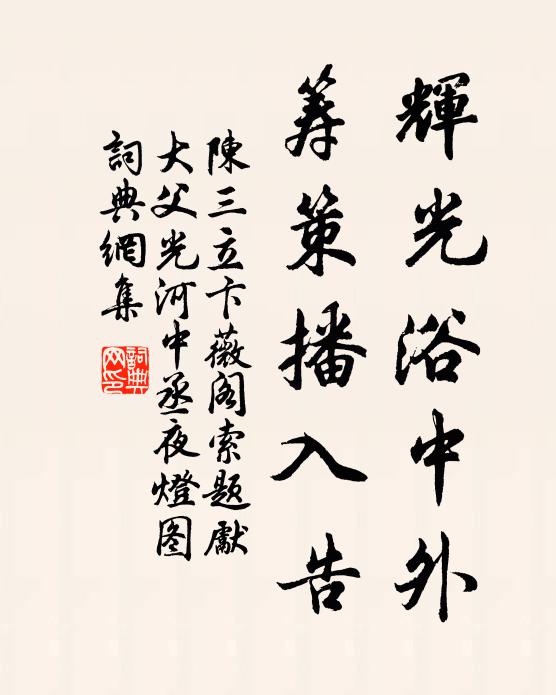 輝光浴中外
筹策播入告
陳三立卞薇阁索题獻
大父光河中丞夜燈图
詞典網集
詞典網印